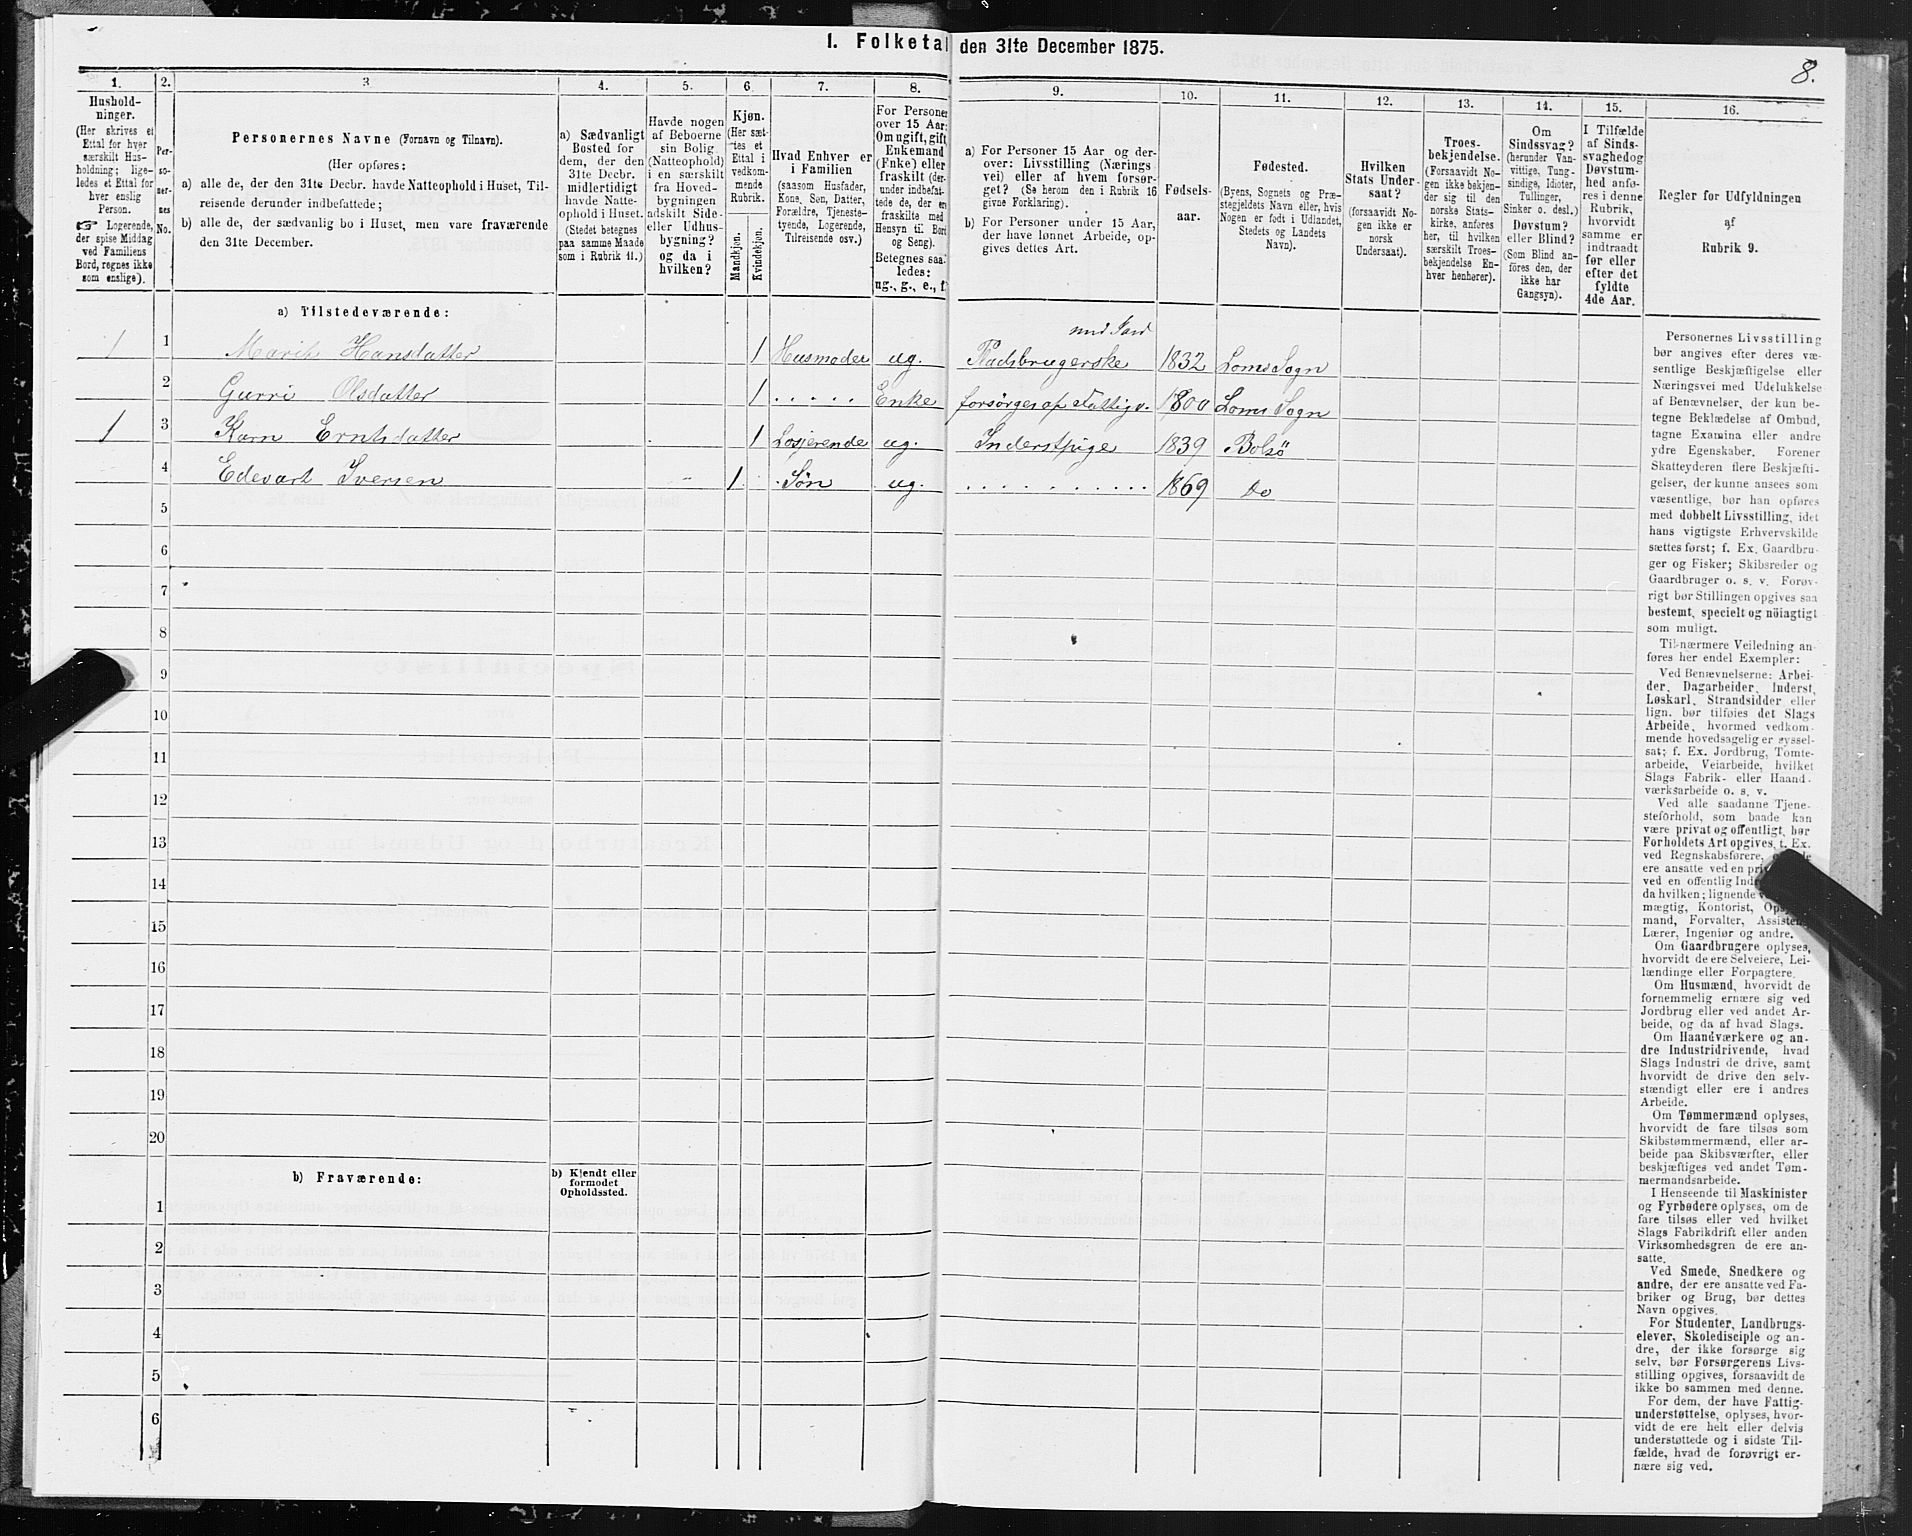 1. Folketal den 31te December 1875.
8.
1.
Hushold-
ninger.
(Her skrives et
Ettal for hver
særskilt Hus-
holdning; lige-
ledes et Ettal for
hver enslig
Person.
☞ Logerende,
der spise Middag
ved Familiens
Bord, regnes ikke
som enslige).
2.
Per-
so-
ner-
nes
No.
3
Personernes Navne (Fornavn og Tilnavn).
(Her opføres:
a) alle de, der den 31te Decbr. havde Natteophold i Huset, Til-
reisende derunder indbefattede;
b) alle de, der sædvanlig bo i Huset, men vare fraværende
den 31te December.
4.
a) Sædvanligt
Bosted for
dem, der den
31te Decbr.
midlertidigt
havde Natte-
ophold i Huset.
(Stedet betegnes
paa samme Maade
som i Rubrik 11.)
5.
Havde nogen
af Beboerne
sin Bolig
(Natteophold)
i en særskilt
fra Hoved-
bygningen
adskilt Side-
eller Udhus-
bygning?
og da i
hvilken?
6.
Kjøn.
(Her sæt-
tes et
Ettal i
vedkom-
mende
Rubrik.
Mandkjøn.
Kvindekjøn.
7.
Hvad Enhver er
i Familien
(saasom Husfader,
Kone, Søn, Datter,
Forældre, Tjeneste-
tyende, Logerende,
Tilreisende osv.)
8.
For Personer
over 15 Aar:
Om ugift, gift,
Enkemand
(Enke) eller
fraskilt (der-
under indbefat-
tede de, der ere
fraskilte med
Hensyn til Bord
og Seng).
Betegnes saa-
ledes:
ug., g., e., f.
9.
a) For Personer 15 Aar og der-
over: Livsstilling (Nærings
vei) eller af hvem forsør-
get? (Se herom den i Rubrik 16
givne Forklaring).
b) For Personer under 15 Aar,
der have lønnet Arbeide, op-
gives dettes Art.
10.
Fødsels-
aar.
11.
Fødested.
(Byens, Sognets og Præ-
stegjeldets Navn eller, hvis
Nogen er født i Udlandet,
Stedets og Landets
Navn).
12.
Hvilken
Stats Under-
saat?
(forsaavidt No-
gen ikke er
norsk
Undersaat).
13.
Troes-
bekjendelse.
(Forsaavidt No-
gen ikke bekjen-
der sig til den
norske Stats-
kirke, anføres
her, til hvilken
særskilt Troes-
bekjendelse En-
hver henhører).
14.
Om
Sindssvag?
(herunder Van-
vittige, Tung-
sindige, Idioter,
Tullinger,
Sinker o. desl.)
Døvstum?
eller Blind?
(Som Blind an-
føres den, der
ikke har
Gangsyn).
15.
I Tilfælde
af Sinds-
svaghed og
Døvstum-
hed anfø-
res i denne
Rubrik,
hvorvidt
samme er
indtraadt
før eller
efter det
fyldte
4de Aar.
16.
Regler for Udfyldningen
af
Rubrik 9.
a) Tilstedeværende:
1 1 Marit Hansdatter 1 Husmoder ug. Pladsbrugerske med Jord 1832 Loms Sogn
2 Gurri Olsdatter 1 . . . . . Enke forsørges af Fattigv. 1800 Loms Sogn
1 3 Karn Erntsdatter 1 Losjerende ug. Inderstpige 1839 Bolsö
4 Edevart Iversen 1 Søn ug. . . . . . . . . . . 1869 Do
5
6
7
8
9
10
11
12
13
14
15
16
17
18
19
20
b) Fraværende:
b) Kjendt eller
formodet
Opholdssted.
1
2
3
4
5
6
Personernes Livsstilling
bør angives efter deres væ-
sentlige Beskjæftigelse eller
Næringsvei med Udelukkelse
af Benævnelser, der kun be-
tegne Beklædelse af Ombud,
tagne Examina eller andre
ydre Egenskaber. Forener
Skatteyderen flere Beskjæfti-
gelser, der kunne ansees som
væsentlige, bør han opføres
med dobbelt Livsstilling, idet
hans vigtigste Erhvervskilde
sættes først; f. Ex. Gaardbru-
ger og Fisker; Skibsreder og
Gaardbruger o. s. v. Forøv-
rigt bør Stillingen opgives saa
bestemt, specielt og nöiagtigt
som muligt.
Til nærmere Veiledning an-
føres her endel Exempler:
Ved Benævnelserne: Arbei-
der, Dagarbeider, Inderst,
Løskarl, Strandsidder eller
lign. bør tilføies det Slags
Arbeide, hvormed vedkom-
mende hovedsagelig er syssel-
sat; f. Ex. Jordbrug, Tomte-
arbeide, Veiarbeide, hvilket
Slags Fabrik- eller Haand-
værksarbeide o. s. v.
Ved alle saadanne Tjene-
steforhold, som baade kan
være privat og offentligt, bør
Forholdets Art opgives, t. Ex.
ved Regnskabsførere,
ere ansatte ved en
ved en offentlig
da hvilken; lignende
mægtig, Kontorist,
mand, Forvalter,
Lærer, Ingeniør og andre.
Om Gaardbrugere oplyses,
hvorvidt de ere Selveiere, Lei-
lændinge eller Forpagtere.
Om Husmænd, hvorvidt de
fornemmelig ernære sig ved
Jordbrug eller ved andet Ar-
beide, og da af hvad Slags.
Om Haandværkere og an-
dre Industridrivende, hvad
Slags Industri de drive, samt
hvorvidt de drive den selv-
stændigt eller ere i andres
Arbeide.
Om Tømmermænd oplyses,
hvorvidt de fare tilsøs som
Skibstømmermænd, eller ar-
beide paa Skibsværfter, eller
beskjæftiges ved andet Tøm-
mermandsarbeide.
I Henseende til Maskinister
og Fyrbødere oplyses, om de
fare tilsøs eller ved hvilket
Slags Fabrikdrift eller anden
Virksomhedsgren de ere an-
satte.
Ved Smede, Snedkere og
andre, der ere ansatte ved Fa-
briker og Brug, bør dettes
Navn opgives.
For Studenter, Landbrugs-
elever, Skoledisciple og an-
dre, der ikke forsørge sig
selv, bør Forsørgerens Livs-
stilling opgives, forsaavidt de
ikke bo sammen med denne.
For dem, der have Fattig-
understøttelse, oplyses, hvor-
vidt de ere helt eller delvis
understøttede og i sidste Til-
fælde, hvad de forøvrigt er-
nære sig ved.